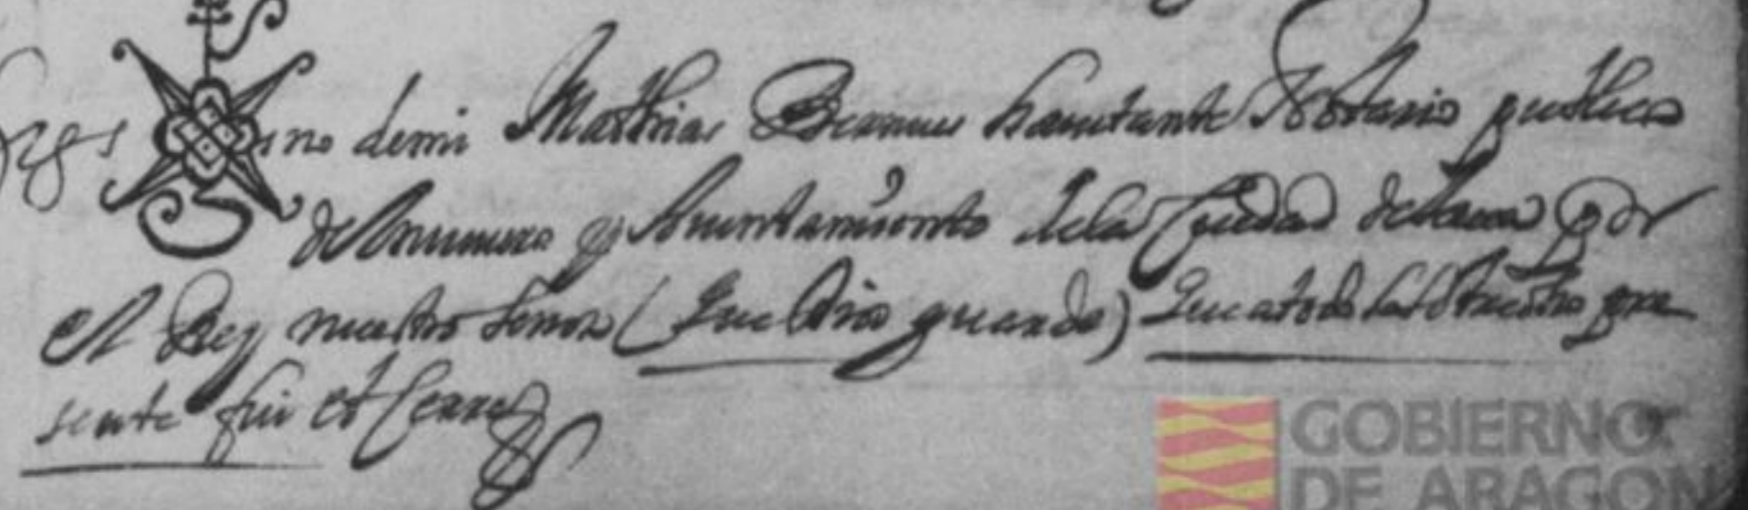 Sig no de mi Mathias Bernues havitante Notario publico
del numero y Ayuntamiento de la Ciudad de Jaca por
el Rey nuestro señor (que Dios guarde) que a todo lo sobredicho pre
sente fui et Cerre
GOBIERNO
DE ARAGON